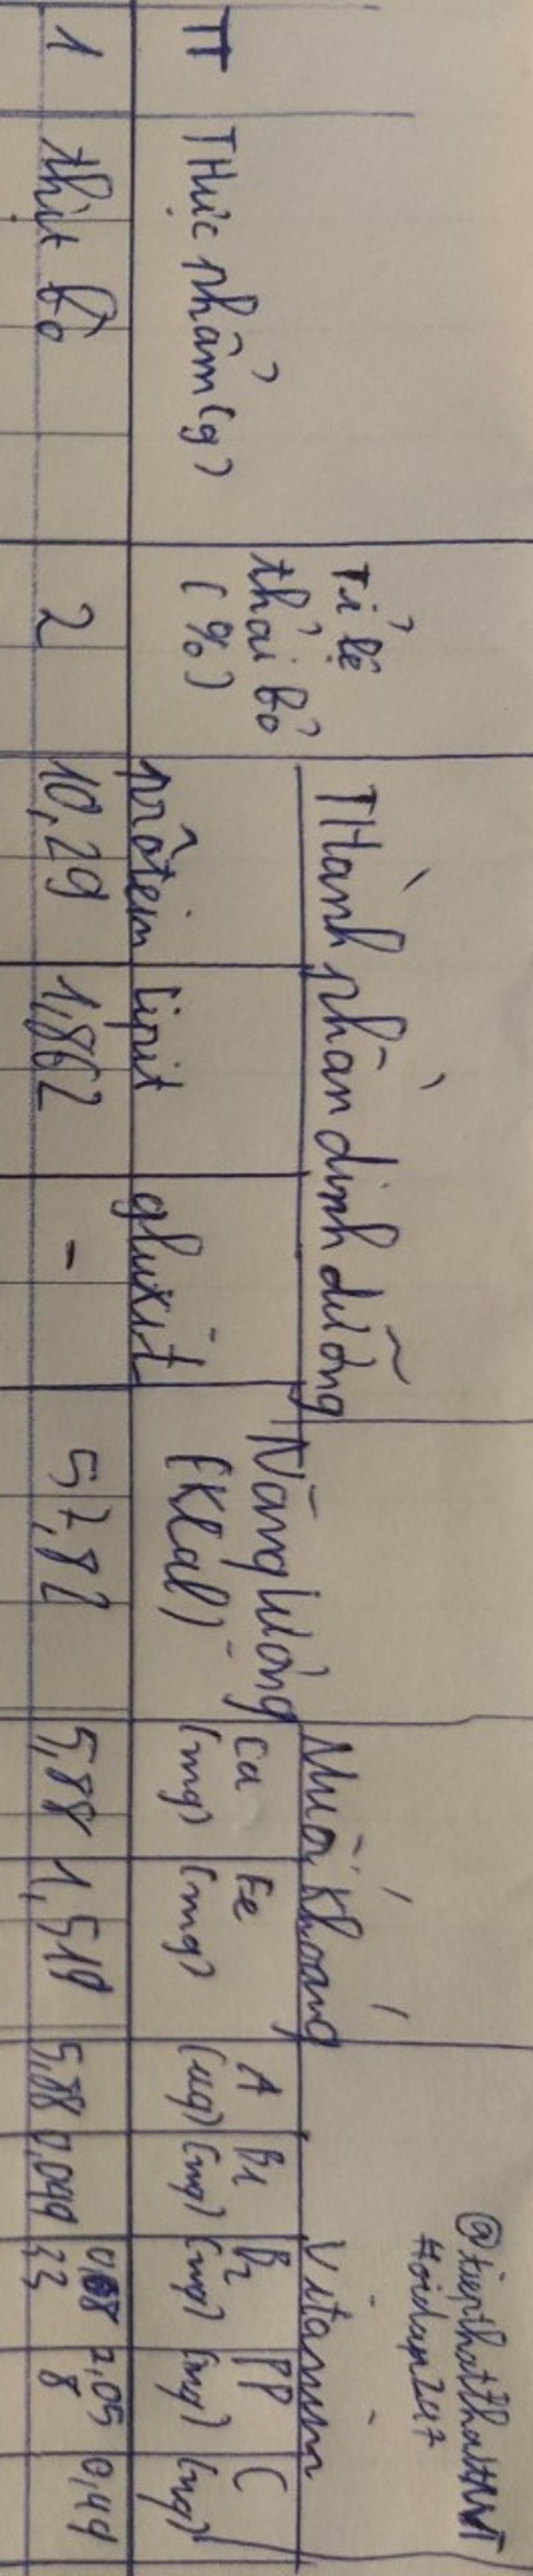 TT
Thực phẩm (g)
Tỉ lệ
thải bỏ
(%)
Thành phần dinh dưỡng
prôtein
lipit
gluxit
Năng lượng
(Kcal)
Muối khoáng
Ca
(mg)
Fe
(mg)
Vitamin
A
(µg)
B1
(mg)
B2
(mg)
PP
(mg)
C
(mg)
1
thịt bò
2
10,29
1,862
-
57,82
5,88
1,519
5,88
0,049
2,05
8
0,49